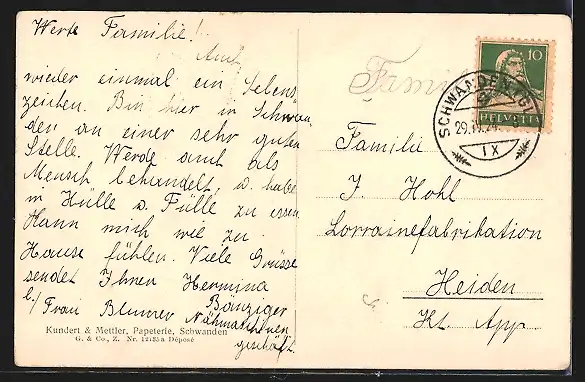 Werte Familie!
Auch
wieder einmal ein Lebens
zeichen. Bin hier in Schwan
den an einer sehr guten
Stelle. Werde auch als
Mensch behandelt, u. habe
in Hülle u. Fülle zu essen
Kann mich wol zu
Hause fühlen. Viele Grüsse
sendet Ihnen Hermina
Bänziger
b./ Frau Blumer Nähmaschinen
geschäft.
Kundert & Mettler, Papeterie, Schwanden
G. & Co., Z. Nr. 12185a Déposé
Fami
10
HELVETIA
SCHWANDEN
29.IV.24
IX
Familie
J. Hohl
Lorrainefabrikation
Heiden
Kt. App